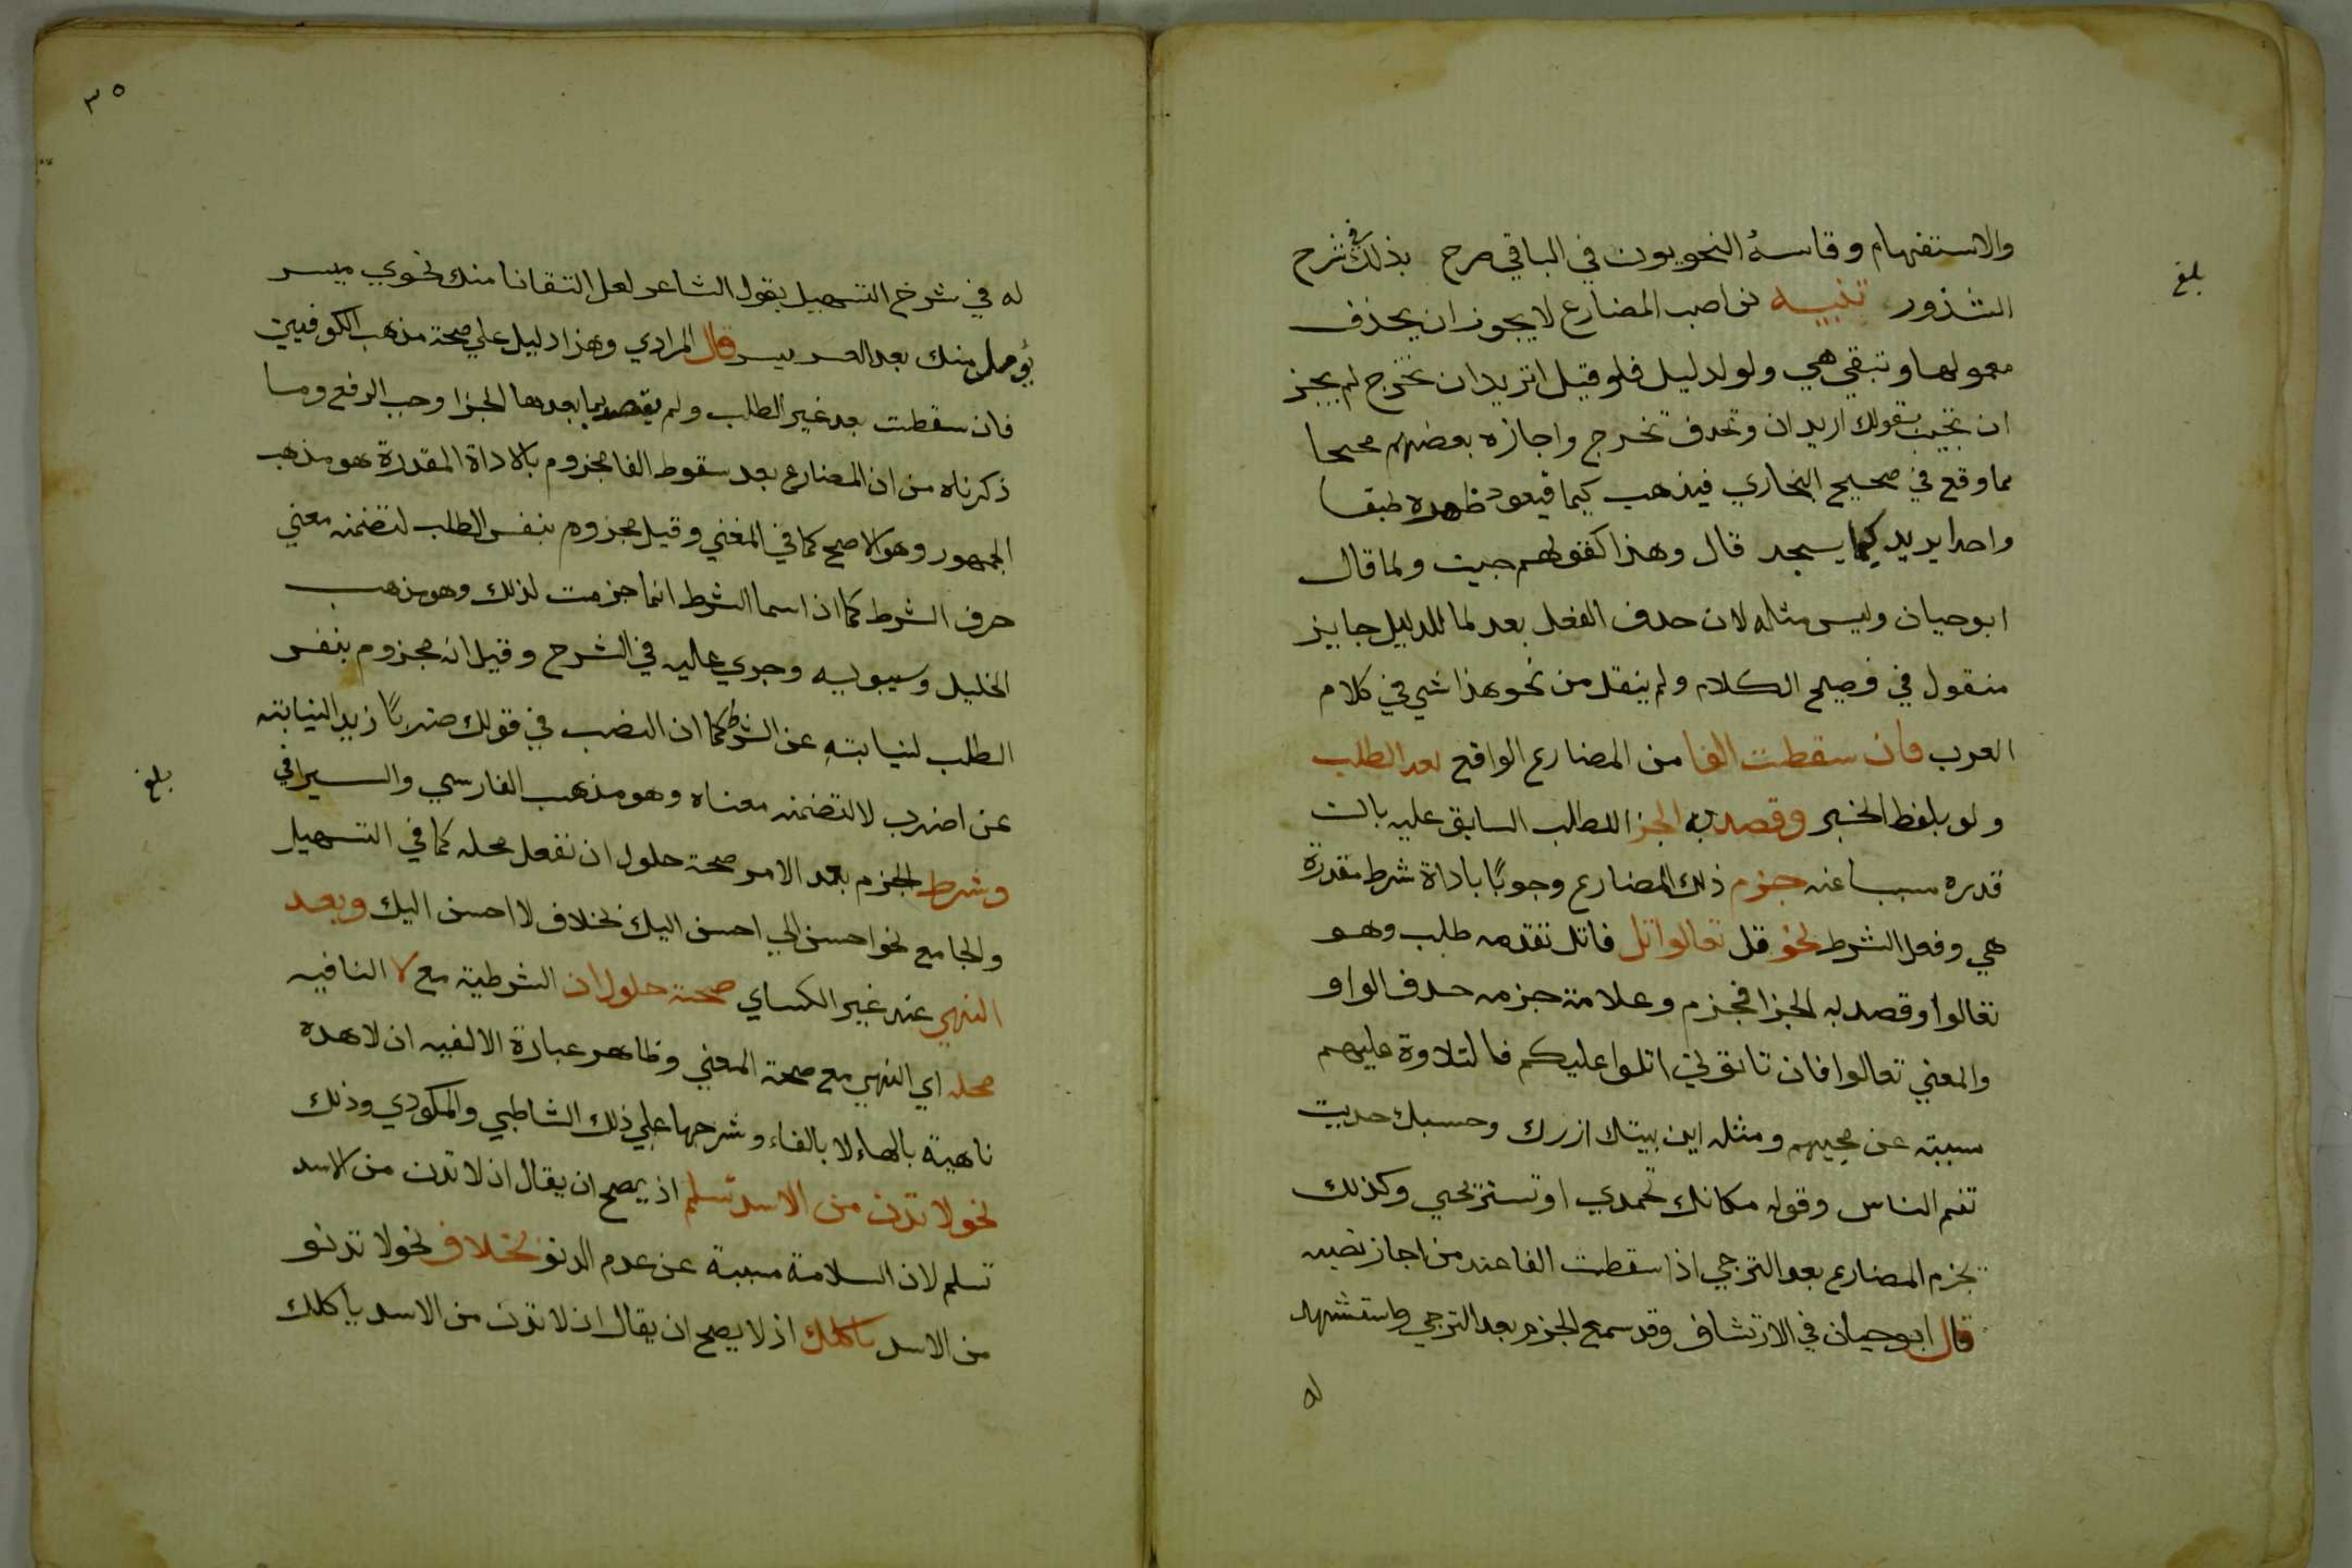 والاستفهام وقاسه النحويون في الباقي صرح بذلك في شرح
بلغ
الشذور تنبيه نواصب المضارع لا يجوز ان يحذف
معمولها وتبقي هي ولو لدليل فلو قيل اتريد ان تخرج لم يجز
ان تجيب بقولك اريد ان وتحدف تخرج واجازه بعضهم محتجا
مما وقع في صحيح البخاري فيذهب كيما فيعود ظهره طبقا
واحدا يريد كيما يسجد قال وهذا كقولهم جيت ولما قال
ابو حيان وليس مثله لان حدف الفعل بعد لما للدليل جايز
منقول في فصيح الكلام ولم ينقل من نحو هذا شي في كلام
العرب فان سقطت الفا من المضارع الواقع بعد الطلب
ولو بلفظ الخبر وقصد به الجزا للطلب السابق عليه بان
قدره مسببا عنه جزم ذلك المضارع وجوبًا باداة شرط مقدرة
هي وفعل الشرط نحو قل تعالوا اتل فاتل تقدمه طلب وهو
تعالوا وقصد به الجزا فجزم وعلامة جزمه حدف الواو
والمعني تعالوا فان تاتوني اتلوا عليكم فالتلاوة عليهم
مسببة عن مجيهم ومثله اين بيتك ازرك وحسبك حديت
تنم الناس وقوله مكانك تحمدي او تستريحي وكذلك
يجزم المضارع بعد الترجي اذا سقطت الفا عند من اجاز نصبه
قال ابو حيان في الارتشاف وقد سمع الجزم بعد الترجي واستشهد
له
٣٥
له في شرح التسهيل بقول الشاعر لعل التفاتا منك نحوي ميسر
يؤمل منك بعد العسر يسر قال المرادي وهذا دليل علي صحة مذهب الكوفيين
فان سقطت بعد غير الطلب ولم يقصد بما بعدها الجزا وجب الرفع وما
ذكرناه من ان المضارع بعد سقوط الفا مجزوم بالاداة المقدرة هو مذهب
الجمهور وهو الاصح كما في المغني وقيل مجزوم بنفس الطلب لتضمنه معني
حرف الشرط كما ان اسما الشرط انما جزمت لذلك وهو مذهب
الخليل وسيبويه وجري عليه في الشرح وقيل انه مجزوم بنفس
الطلب لنيابته عن الشرط كما ان النصب في قولك ضربًا زيدا لنيابته
عن اضرب لا لتضمنه معناه وهو مذهب الفارسي والسيرافي
بلغ
وشرط الجزم بعد الامر صحة حلول ان تفعل محله كما في التسهيل
والجامع نحو احسن الي احسن اليك بخلاف لا احسن اليك وبعد
النهي عند غير الكساي صحة حلول ان الشرطية مع لا النافيه
محله اي النهي مع صحة المعني وظاهر عبارة الالفيه ان لا هذه
ناهية بالهاء لا بالفاء وشرحها علي ذلك الشاطبي والمكودي وذلك
نحو لا تدن من الاسد تسلم اذ يصح ان يقال ان لا تدن من الاسد
تسلم لان السلامة مسببة عن عدم الدنو بخلاف نحو لا تدنو
من الاسد ياكلك اذ لا يصح ان يقال ان لا تدن من الاسد ياكلك